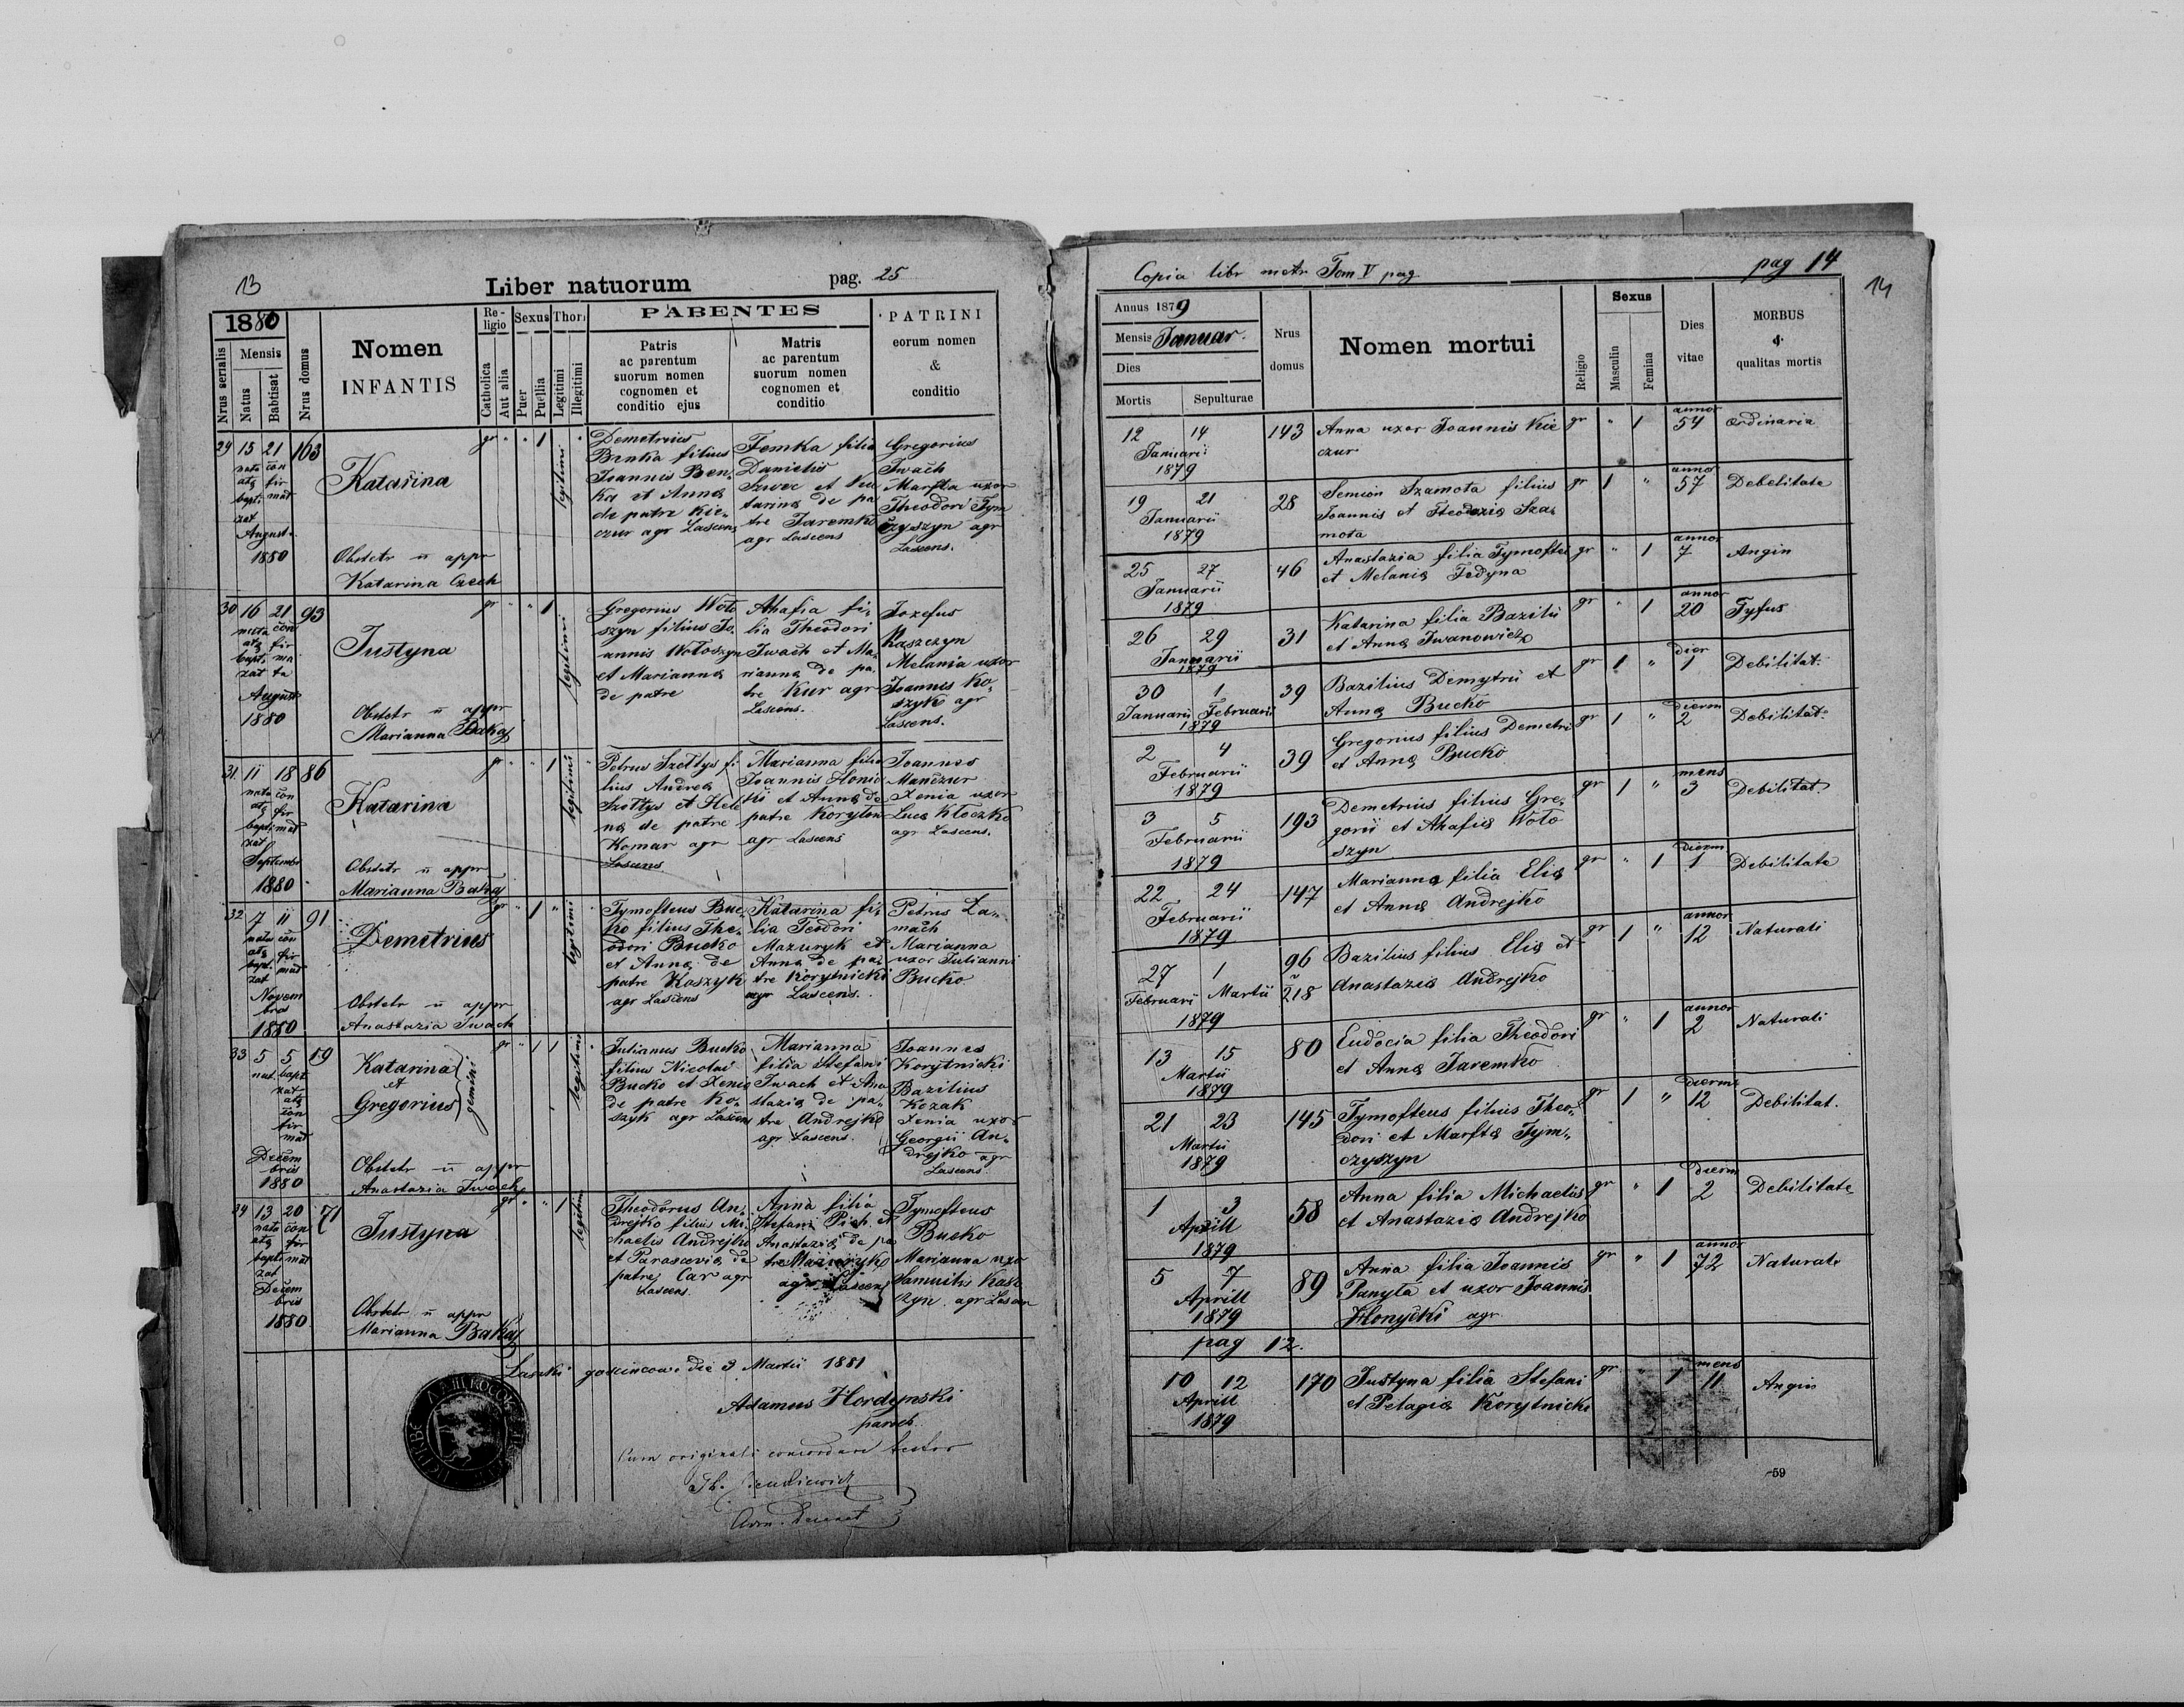 13
Liber natuorum
pag. 25
1880
Nrus serialis
Mensis
Natus
Babtisat
Nrus domus
Nomen
INFANTIS
Re-
ligio
Catholica
Aut alia
Sexus
Puer
Puella
Thori
Legitimi
Illegitimi
PARENTES
Patris
ac parentum
suorum nomen
cognomen et
conditio ejus
Matris
ac parentum
suorum nomen
cognomen et
conditio
PATRINI
eorum nomen
&
conditio
29 15 21 103
August.
1880
Katarina
Obstetr n appr
Katarina Czech
gr " " 1 legitimi "
Demetrius
Benka filius
Joannis Ben-
ka et Anna
de patre Kie-
czur agr Lascens
Femka filia
Danielis
Szwec et Ka
tarina de pa
tre Jaremko
agr Lascens
Gregorius
Iwach
Marfta uxor
Theodori Tym
czyszyn agr
Lascens.
30 16 21 93
August
1880
Justyna
Obstetr n appr
Marianna Bakaj
gr " " 1 legitimi
Gregorius Woto
szyn filius Jo-
annis Wotoszyn
et Marianna
de patre
Ahafia fi-
lia Theodori
Iwach et Ma-
rianna de pa-
tre Kur agr
Lascens.
Jozefus
Kaszczyn
Melania uxor
Joannis Ko-
szyk agr
Lascens.
31. 11 18 86
Septembr
1880.
Katarina
Obstetr n appr
Marianna Bakaj
gr " " 1 legitimi "
Petrus Szottys fi
lius Andrea
Szottys et Hele
na de patre
Komar agr
Lascens
Marianna filia
Joannis Honic
tki et Anna de
patre Korytn
agr Lascens
Joannes
Manczur
Xenia uxor
Luca Ktoczko
agr Lascens.
32 7 11 91
Novem
bris
1880
Demetrius
Obstetr n appr
Anastazia Iwach
gr " 1 " legitimi "
Tymofteus Buc-
ko filius The-
odori Bucko
et Anna de
patre Kaszyk
agr Lascens
Katarina fi-
lia Teodori
Mazuryk et
Anna de pa-
tre Korytnicki
agr Lascens.
Petrus La-
mach
Marianna
uxor Julianni
Bucko
33 5 5 19
Decem
bris
1880
Katarina
et
Gregorius
gemini
Obstetr n appr
Anastazia Iwach
gr " 1 1 legitimi "
Julianus Bucko
filius Nicolai
Bucko et Xenia
de patre Ko-
szyk agr Lascens
Marianna
filia Stefani
Iwach et Ana
stazia de pa-
tre Andrejko
agr Lascens.
Joannes
Korytnicki
Bazilius
Kozak
Xenia uxor
Georgii An-
drejko agr
Lascens.
34 13 20 71
Decem
bris
1880.
Justyna
Obstetr n appr
Marianna Bakaj
gr " " 1 legitim
Theodorus An-
drejko filius Mi-
chaelis Andrejko
et Parascevia de
patre Car agr
Lascens.
Anna filia
Stefani Pich et
Anastazia de pa
tre Mazuryk
agr Lascens
Tymofteus
Bucko
Marianna uxo
Samuilis Kasz
czyn agr Lascen
Laszki goscincowe die 3 Martii 1881
Adamus Hordynski
paroch.
Cum originali concordare testor
Copia libr metr Tom V pag
pag 14
14
Annus 1879
Mensis Januar.
Dies
Mortis
Sepulturae
Nrus
domus
Nomen mortui
Religio
Sexus
Masculin
Femina
Dies
vitae
MORBUS
&
qualitas mortis
12 14 143 Anna uxor Joannis Kie gr " 1 annor 54 Ordinaria
Januarii czur
1879
19 21 28 Semion Szamota filius gr 1 " annor 57 Debelitate
Januarii Joannis et Theodozia Sza-
1879 mota
25 27 46 Anastazia filia Tymoftei gr " 1 annor 7 Angin
Januarii et Melania Fedyna
1879
26 29 31 Katarina filia Bazilii gr " 1 annor 20 Tyfus
Januarii et Anna Iwanowicz
1879
30 1 39 Bazilius Demytrii et gr 1 " dier 1 Debilitat.
Januarii Februarii Anna Bucko
1879
2 4 39 Gregorius filius Demetri gr 1 " dierm 2 Debilitat.
Februarii et Anna Bucko
1879
3 5 193 Demetrius filius Gre- gr 1 " mens 3 Debilitat.
Februarii gorii et Ahafia Woto
1879 szyn
22 24 147 Marianna filia Elia gr " 1 dierm 1 Debilitate
Februarii et Anna Andrejko
1879
27 1 96 Bazilius filius Elia et gr 1 " annor 12 Naturali
Februarii Martii 218 Anastazia Andrejko
1879
13 15 80 Eudocia filia Theodori gr " 1 annor 2 Naturali
Martii et Anna Jaremko
1879
21 23 145 Tymofteus filius Theo- gr 1 " dierm 12 Debilitat.
Martii dori et Marfta Tym-
1879 czyszyn
1 3 58 Anna filia Michaelis gr " 1 dierm 2 Debilitate
Aprill et Anastazia Andrejko
1879
5 7 89 Anna filia Joannis gr " 1 annor 72 Naturali
Aprill Panyta et uxor Joannis
1879 Honycki agr
pag 12.
10 12 170 Justyna filia Stefani gr " 1 mens 11 Angin
Aprill et Pelagia Korytnicki
1879
59